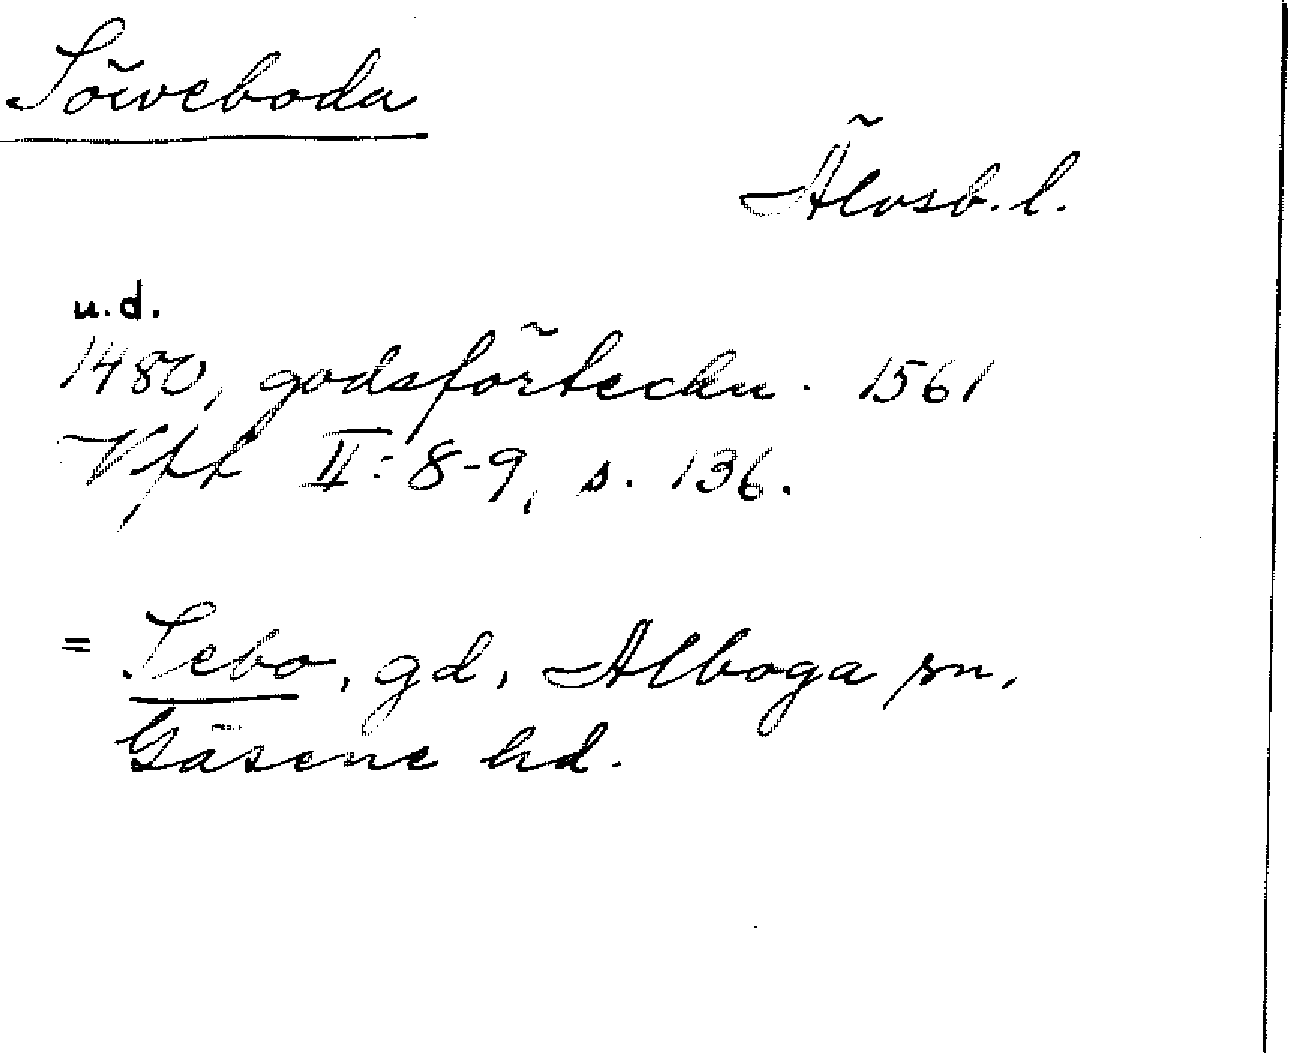 Söweboda
Älvsb. l.
u.d.
1480, godsförteckn. 1561
Vff II: 8-9, s. 136.
= Sebo, gd, Alboga sn,
Gäsene hd.